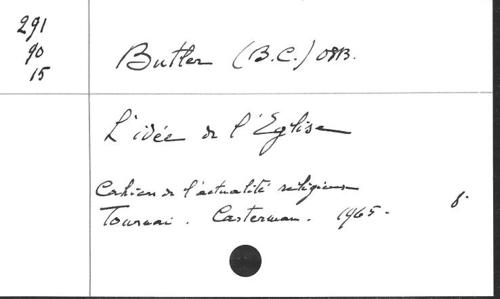 291
90
15
Butler (B.C.) OSB.
L'idée de l'Eglise
Cahiers de l'actualité religieuse
Tournai. Casterman. 1965.